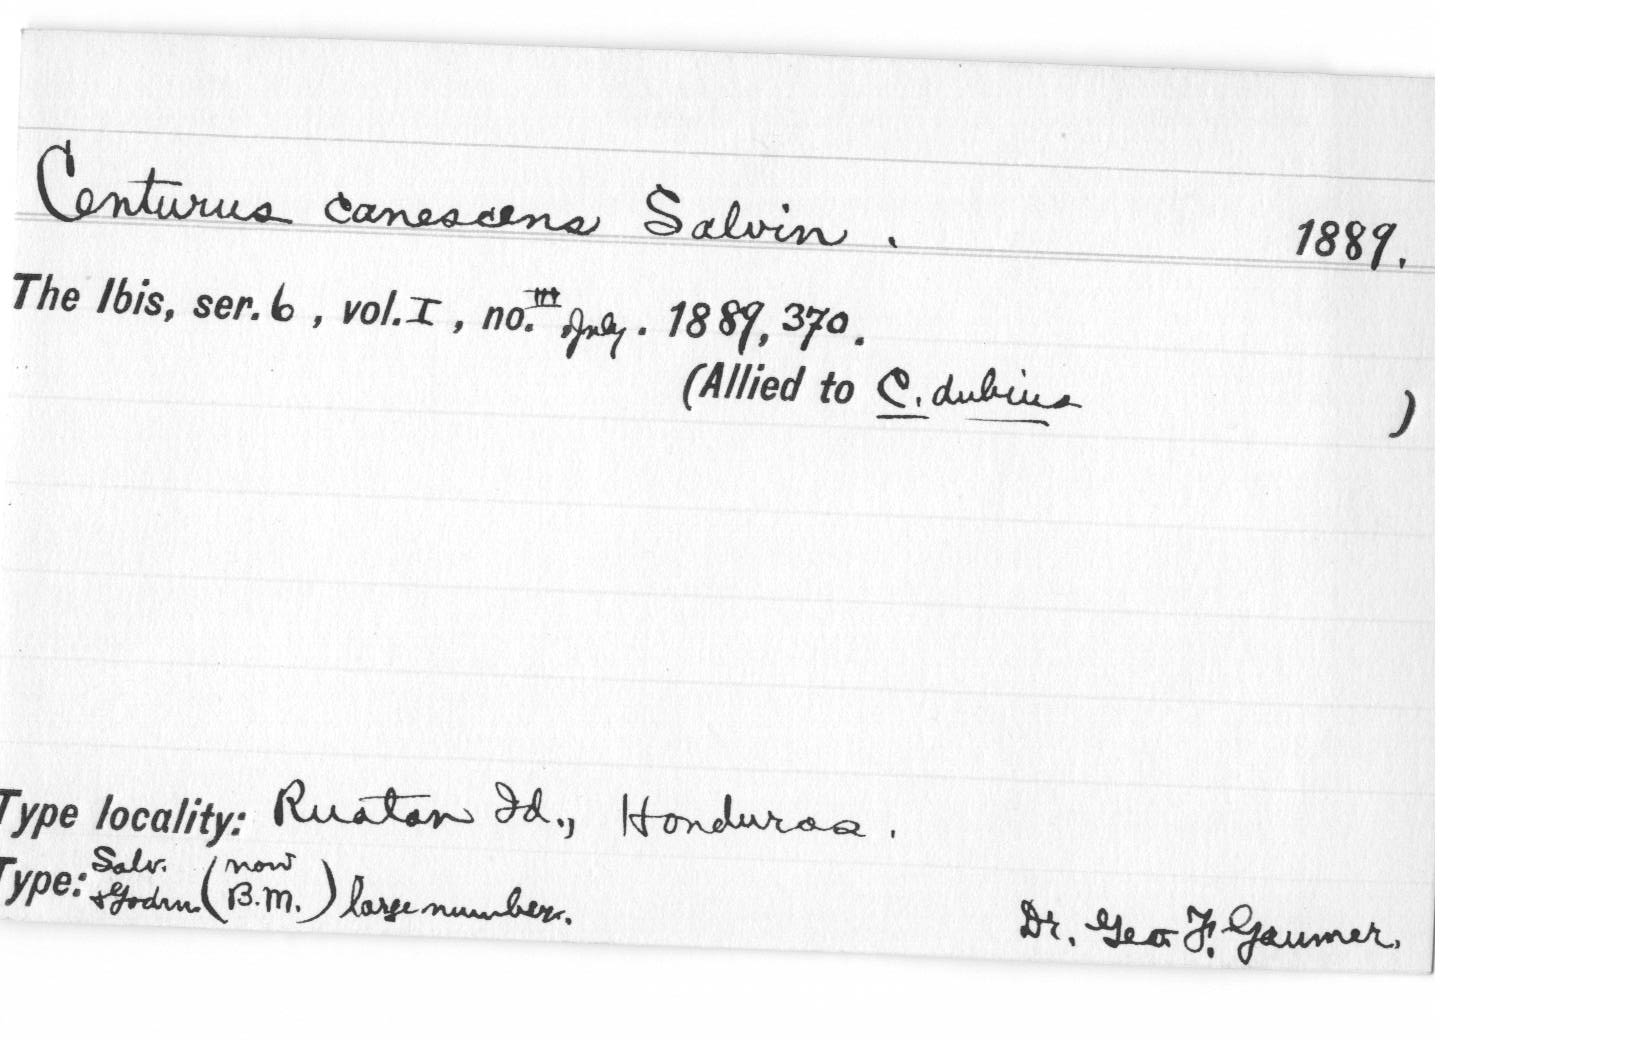 Centurus canescens Salvin. 1889.
The Ibis, ser. 6, vol. I, no. III, July. 1889, 370.
(Allied to C. dubius )
Type locality: Ruatan Id., Honduras.
Type: Salv. & Godm. (now B.M.) large number. Dr. Geo. F. Gaumer.